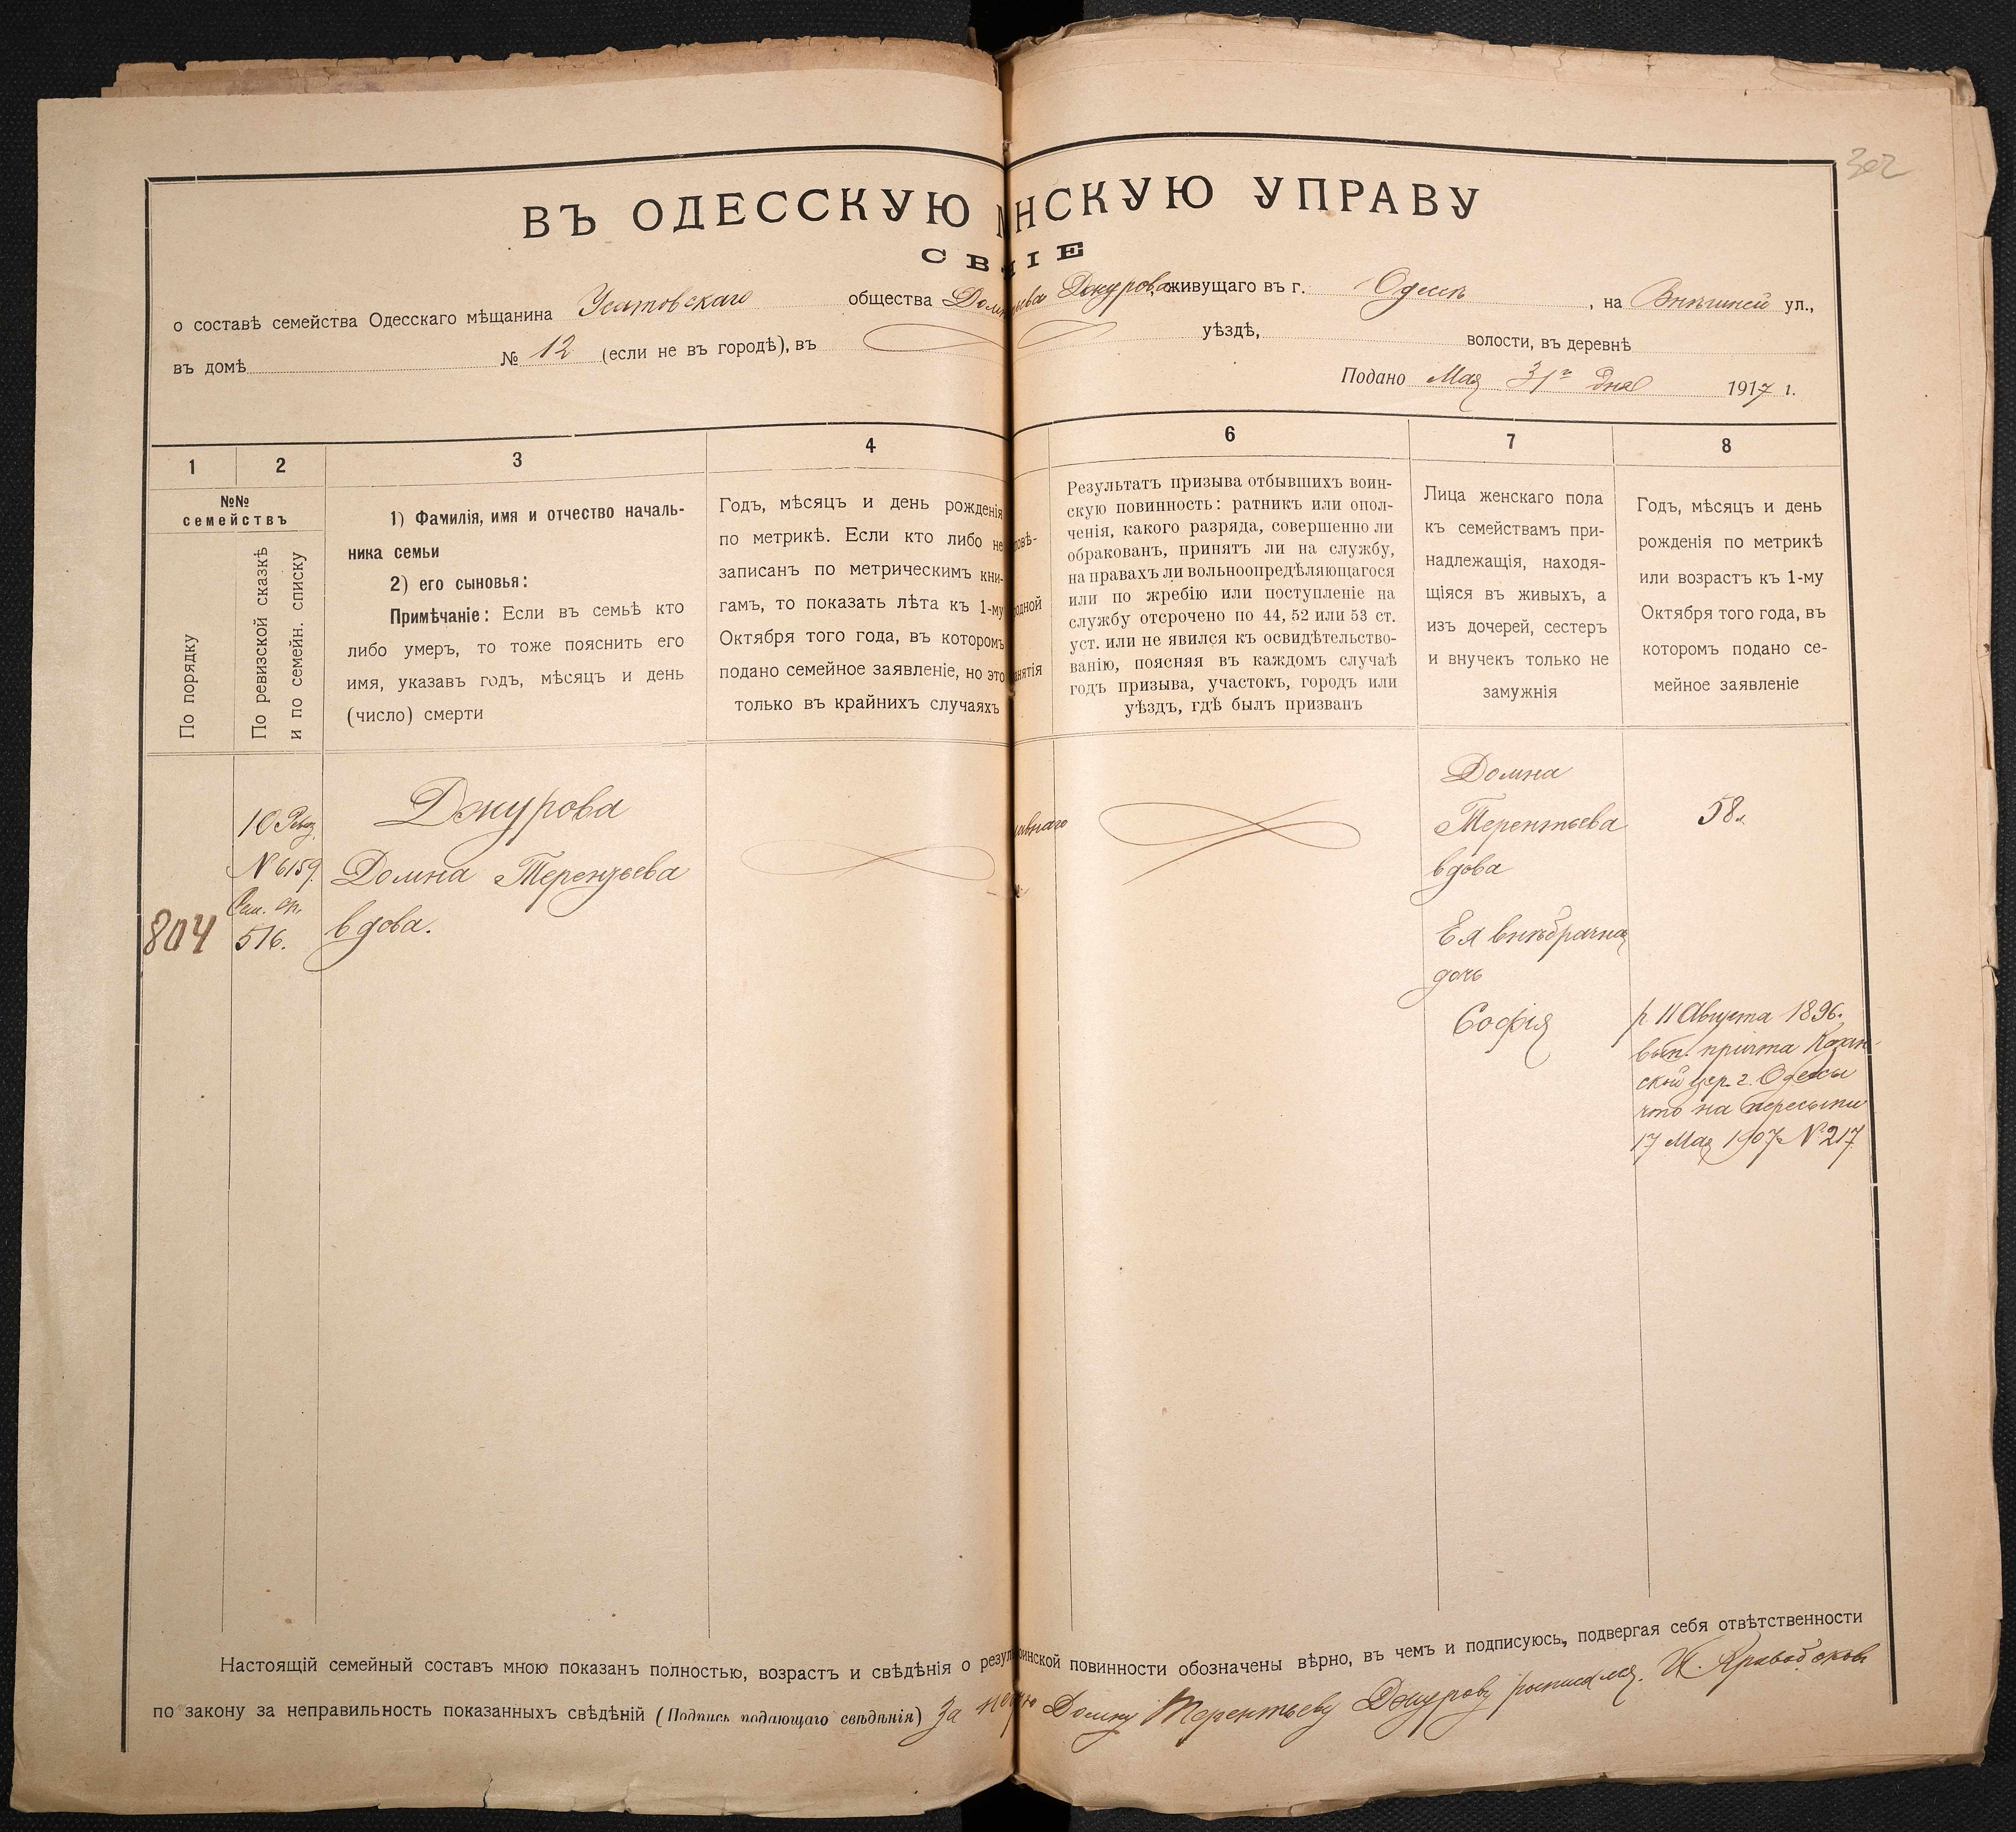 302
ВЪ ОДЕССКУЮ НСКУЮ УПРАВУ
СВ НІЕ
о составѣ семейства Одесскаго мѣщанина Усатовскаго общества Домн ьева Джурова, живущаго въ г. Одессѣ, на Внѣшней ул.,
въ домѣ № 12 (если не въ городѣ), въ уѣздѣ, волости, въ деревнѣ
Подано Мая 31го дня 1917 г.
1
2
3
4
6
7
8
№№
семействъ
По порядку
По ревизской сказкѣ
и по семейн. списку
1) Фамилія, имя и отчество началь-
ника семьи
2) его сыновья:
Примѣчаніе: Если въ семьѣ кто
либо умеръ, то тоже пояснить его
имя, указавъ годъ, мѣсяцъ и день
(число) смерти
Годъ, мѣсяцъ и день рожденія
по метрикѣ. Если кто либо не
записанъ по метрическимъ кни-
гамъ, то показать лѣта къ 1-му
Октября того года, въ которомъ
подано семейное заявленіе, но это
только въ крайнихъ случаяхъ
повѣ-
одной
анятія
Результатъ призыва отбывшихъ воин-
скую повинность: ратникъ или опол-
ченія, какого разряда, совершенно ли
обракованъ, принятъ ли на службу,
на правахъ ли вольноопредѣляющагося
или по жребію или поступленіе на
службу отсрочено по 44, 52 или 53 ст.
уст. или не явился къ освидѣтельство-
ванію, поясняя въ каждомъ случаѣ
годъ призыва, участокъ, городъ или
уѣздъ, гдѣ былъ призванъ
Лица женскаго пола
къ семействамъ при-
надлежащія, находя-
щіяся въ живыхъ, а
изъ дочерей, сестеръ
и внучекъ только не
замужнія
Годъ, мѣсяцъ и день
рожденія по метрикѣ
или возрастъ къ 1-му
Октября того года, въ
которомъ подано се-
мейное заявленіе
804
10 Ревиз.
№ 6159.
Сем. сп.
516.
Джурова
Домна Терентьева
вдова.
ивнаго
Домна
Терентьева
вдова
58 л.
Ея внѣбрачная
дочь
Софія
р. 11 Августа 1896.
вып. причта Казан-
ской цер. г. Одессы
что на Пересыпи
17 Мая 1907 № 217
Настоящій семейный составъ мною показанъ полностью, возрастъ и свѣдѣнія о резул оинской повинности обозначены вѣрно, въ чемъ и подписуюсь, подвергая себя отвѣтственности
по закону за неправильность показанныхъ свѣдѣній (Подпись подающаго свѣдѣнія) За негр Домну Терентьеву Джурову росписался.